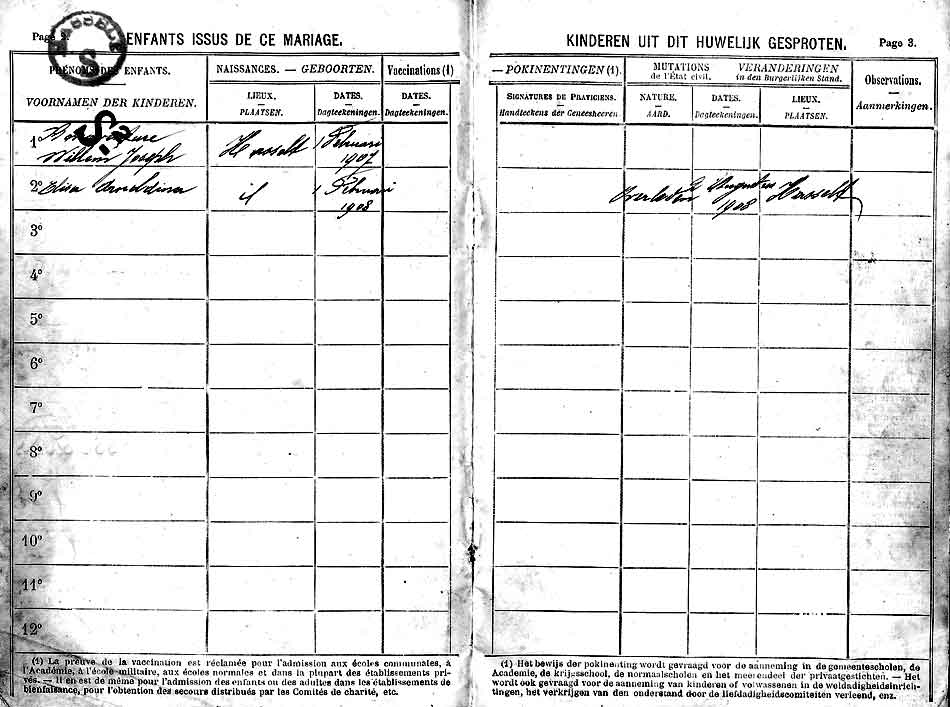 Page 2.
HASSELT
S
ENFANTS ISSUS DE CE MARIAGE.
PRÉNOMS DES ENFANTS.
VOORNAMEN DER KINDEREN.
NAISSANCES. — GEBOORTEN.
LIEUX.
PLAATSEN.
DATES.
Dagteekeningen.
Vaccinations (1)
DATES.
Dagteekeningen.
1º Bonaventure
Willem Joseph
Hasselt
1 Februari
1907
2º Elisa
id
1 Februari
1908
3º
4º
5º
6º
7º
8º
9º
10º
11º
12º
(1) La preuve de la vaccination est réclamée pour l'admission aux écoles communales, à
l'Académie, à l'école militaire, aux écoles normales et dans la plupart des établissements pri-
vés. — Il en est de même pour l'admission des enfants ou des adultes dans les établissements de
bienfaisance, pour l'obtention des secours distribués par les Comités de charité, etc.
KINDEREN UIT DIT HUWELIJK GESPROTEN.
Page 3.
— POKINENTINGEN (1).
SIGNATURES DE PRATICIENS.
Handteekens der Geneesheeren
MUTATIONS
de l'État civil.
VERANDERINGEN
in den Burgerlijken Stand.
NATURE.
AARD.
DATES.
Dagteekeningen.
LIEUX.
PLAATSEN.
Observations.
Aanmerkingen.
Overleden
2 Augustus
1908
Hasselt
(1) Het bewijs der pokinenting wordt gevraagd voor de aanneming in de gemeentescholen, de
Academie, de krijgsschool, de normaalscholen en het meerendeel der privaatgestichten. — Het
wordt ook gevraagd voor de aanneming van kinderen of volwassenen in de weldadigheidsinrich-
tingen, het verkrijgen van den onderstand door de liefdadigheidscomiteiten verleend, enz.